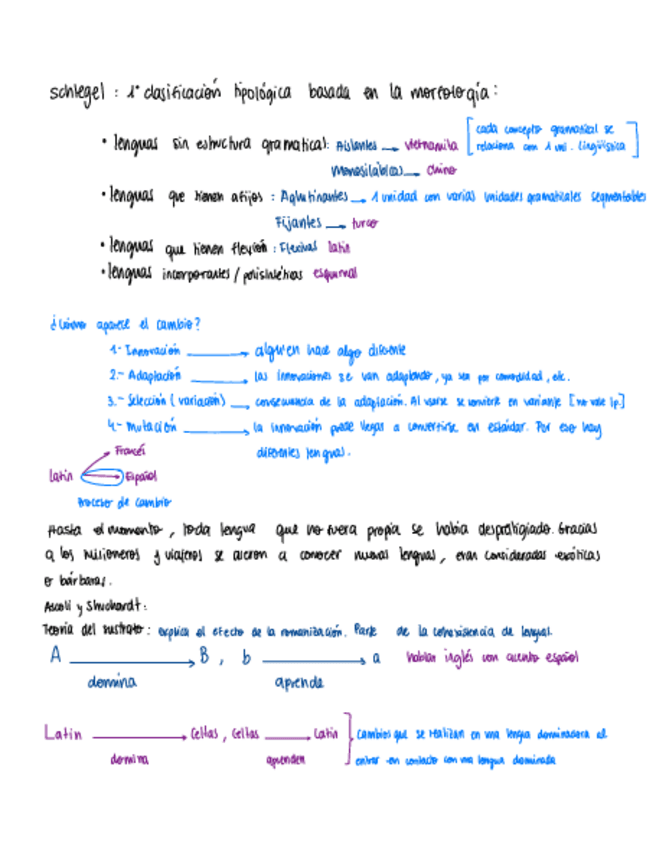 Schlegel : 1ª clasificación tipológica basada en la morfología :
• lenguas sin estructura gramatical: Aislantes → vietnamita [cada concepto gramatical se relaciona con 1 uni. lingüística]
Monosilábicas → chino
• lenguas que tienen afijos : Aglutinantes → 1 unidad con varias unidades gramaticales segmentables
Fijantes → turco
• lenguas que tienen flexión : Flexivas latín
• lenguas incorporantes / polisintéticas esquimal
¿Cómo aparece el cambio?
1.- Innovación → alguien hace algo diferente
2.- Adaptación → las innovaciones se van adaptando, ya sea por comodidad, etc.
3.- Selección (variación) → consecuencia de la adaptación. Al usarse se convierte en variante [no vale 1p.]
4.- Mutación → la innovación puede llegar a convertirse en estándar. Por eso hay
diferentes lenguas.
Francés
latín
Español
Proceso de cambio
Hasta el momento, toda lengua que no fuera propia se había desprestigiado. Gracias
a los misioneros y viajeros se dieron a conocer nuevas lenguas, eran consideradas exóticas
o bárbaras.
Ascoli y Shuchardt:
Teoría del sustrato: explica el efecto de la romanización. Parte de la coexistencia de lenguas.
A → B, b → a hablar inglés con acento español
domina aprende
Latin → Celtas, Celtas → Latin ] Cambios que se realizan en una lengua dominadora al
domina aprenden entrar en contacto con una lengua dominada